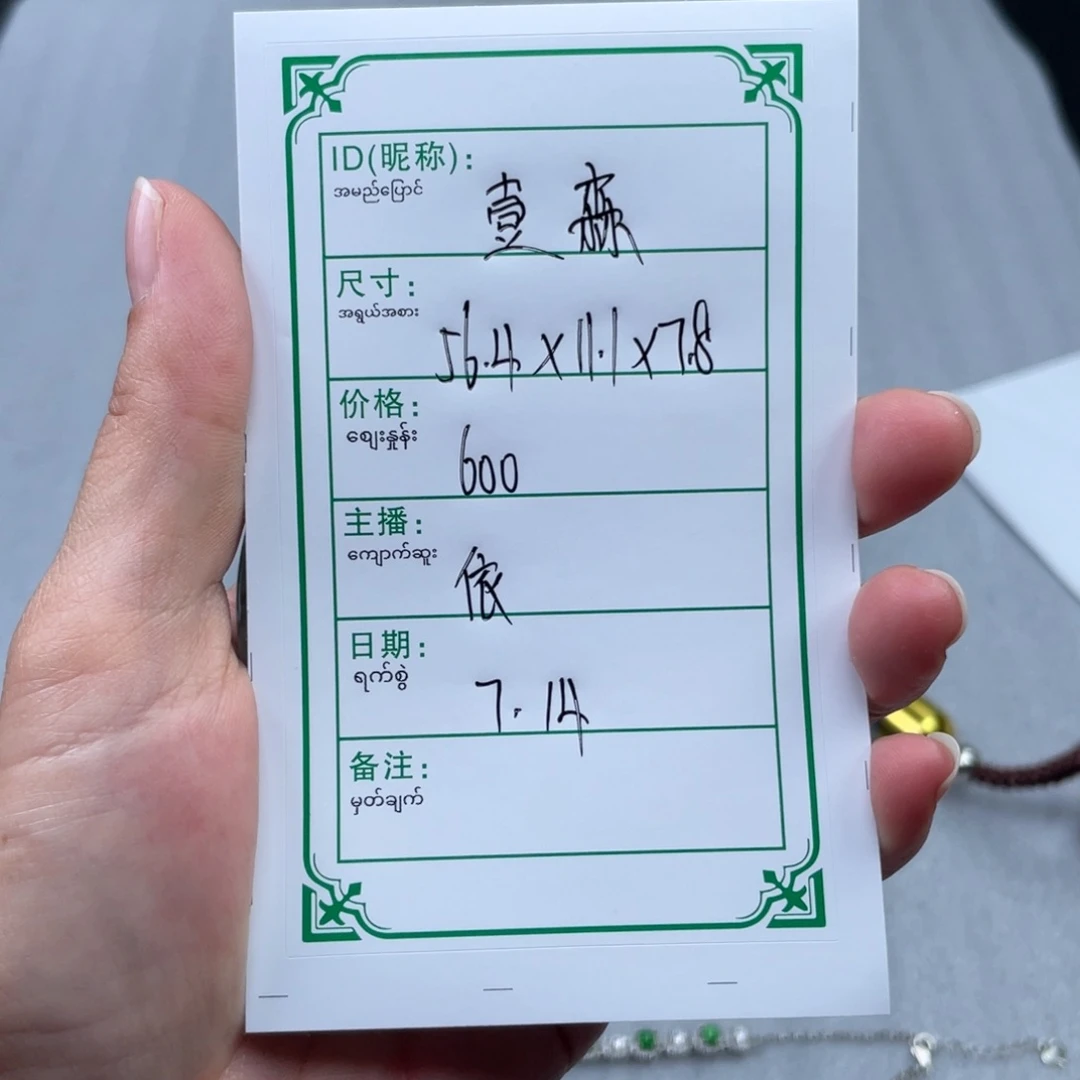 ID(昵称): 壹森
အမည်ပြောင်
尺寸: 56.4×11.1×7.8
အရွယ်အစား
价格: 600
စျေးနှုန်း
主播: 依
ကျောက်ဆူး
日期: 7.14
ရက်စွဲ
备注:
မှတ်ချက်